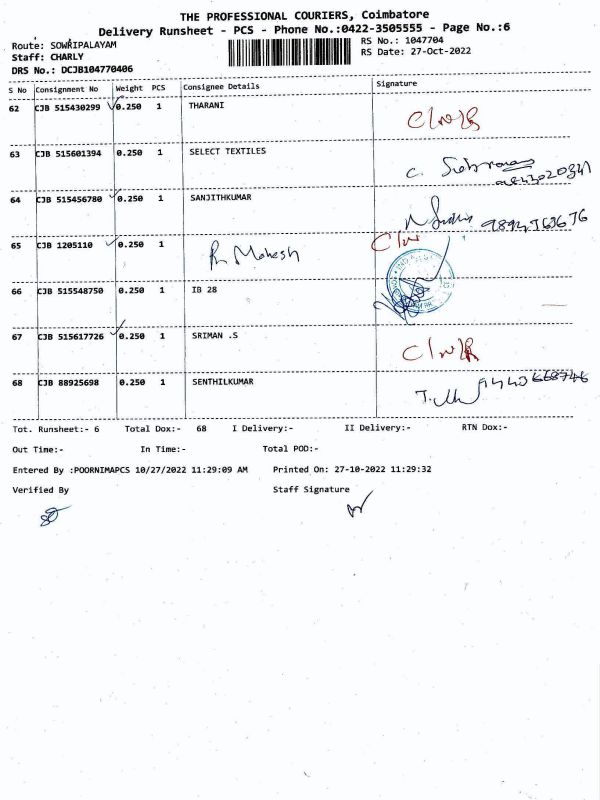 THE PROFESSIONAL COURIERS, Coimbatore
Delivery Runsheet - PCS - Phone No.:0422-3505555 - Page No.:6
Route: SOWRIPALAYAM RS No.: 1047704
Staff: CHARLY RS Date: 27-Oct-2022
DRS No.: DCJB104770406
S No Consignment No Weight PCS Consignee Details Signature
62 CJB 515430299 0.250 1 THARANI
63 CJB 515601394 0.250 1 SELECT TEXTILES
64 CJB 515456780 0.250 1 SANJITHKUMAR
65 CJB 1205110 0.250 1 Mahesh
66 CJB 515548750 0.250 1 IB 28
67 CJB 515617726 0.250 1 SRIMAN .S
68 CJB 88925698 0.250 1 SENTHILKUMAR
Tot. Runsheet:- 6 Total Dox:- 68 I Delivery:- II Delivery:- RTN Dox:-
Out Time:- In Time:- Total POD:-
Entered By :POORNIMAPCS 10/27/2022 11:29:09 AM Printed On: 27-10-2022 11:29:32
Verified By Staff Signature